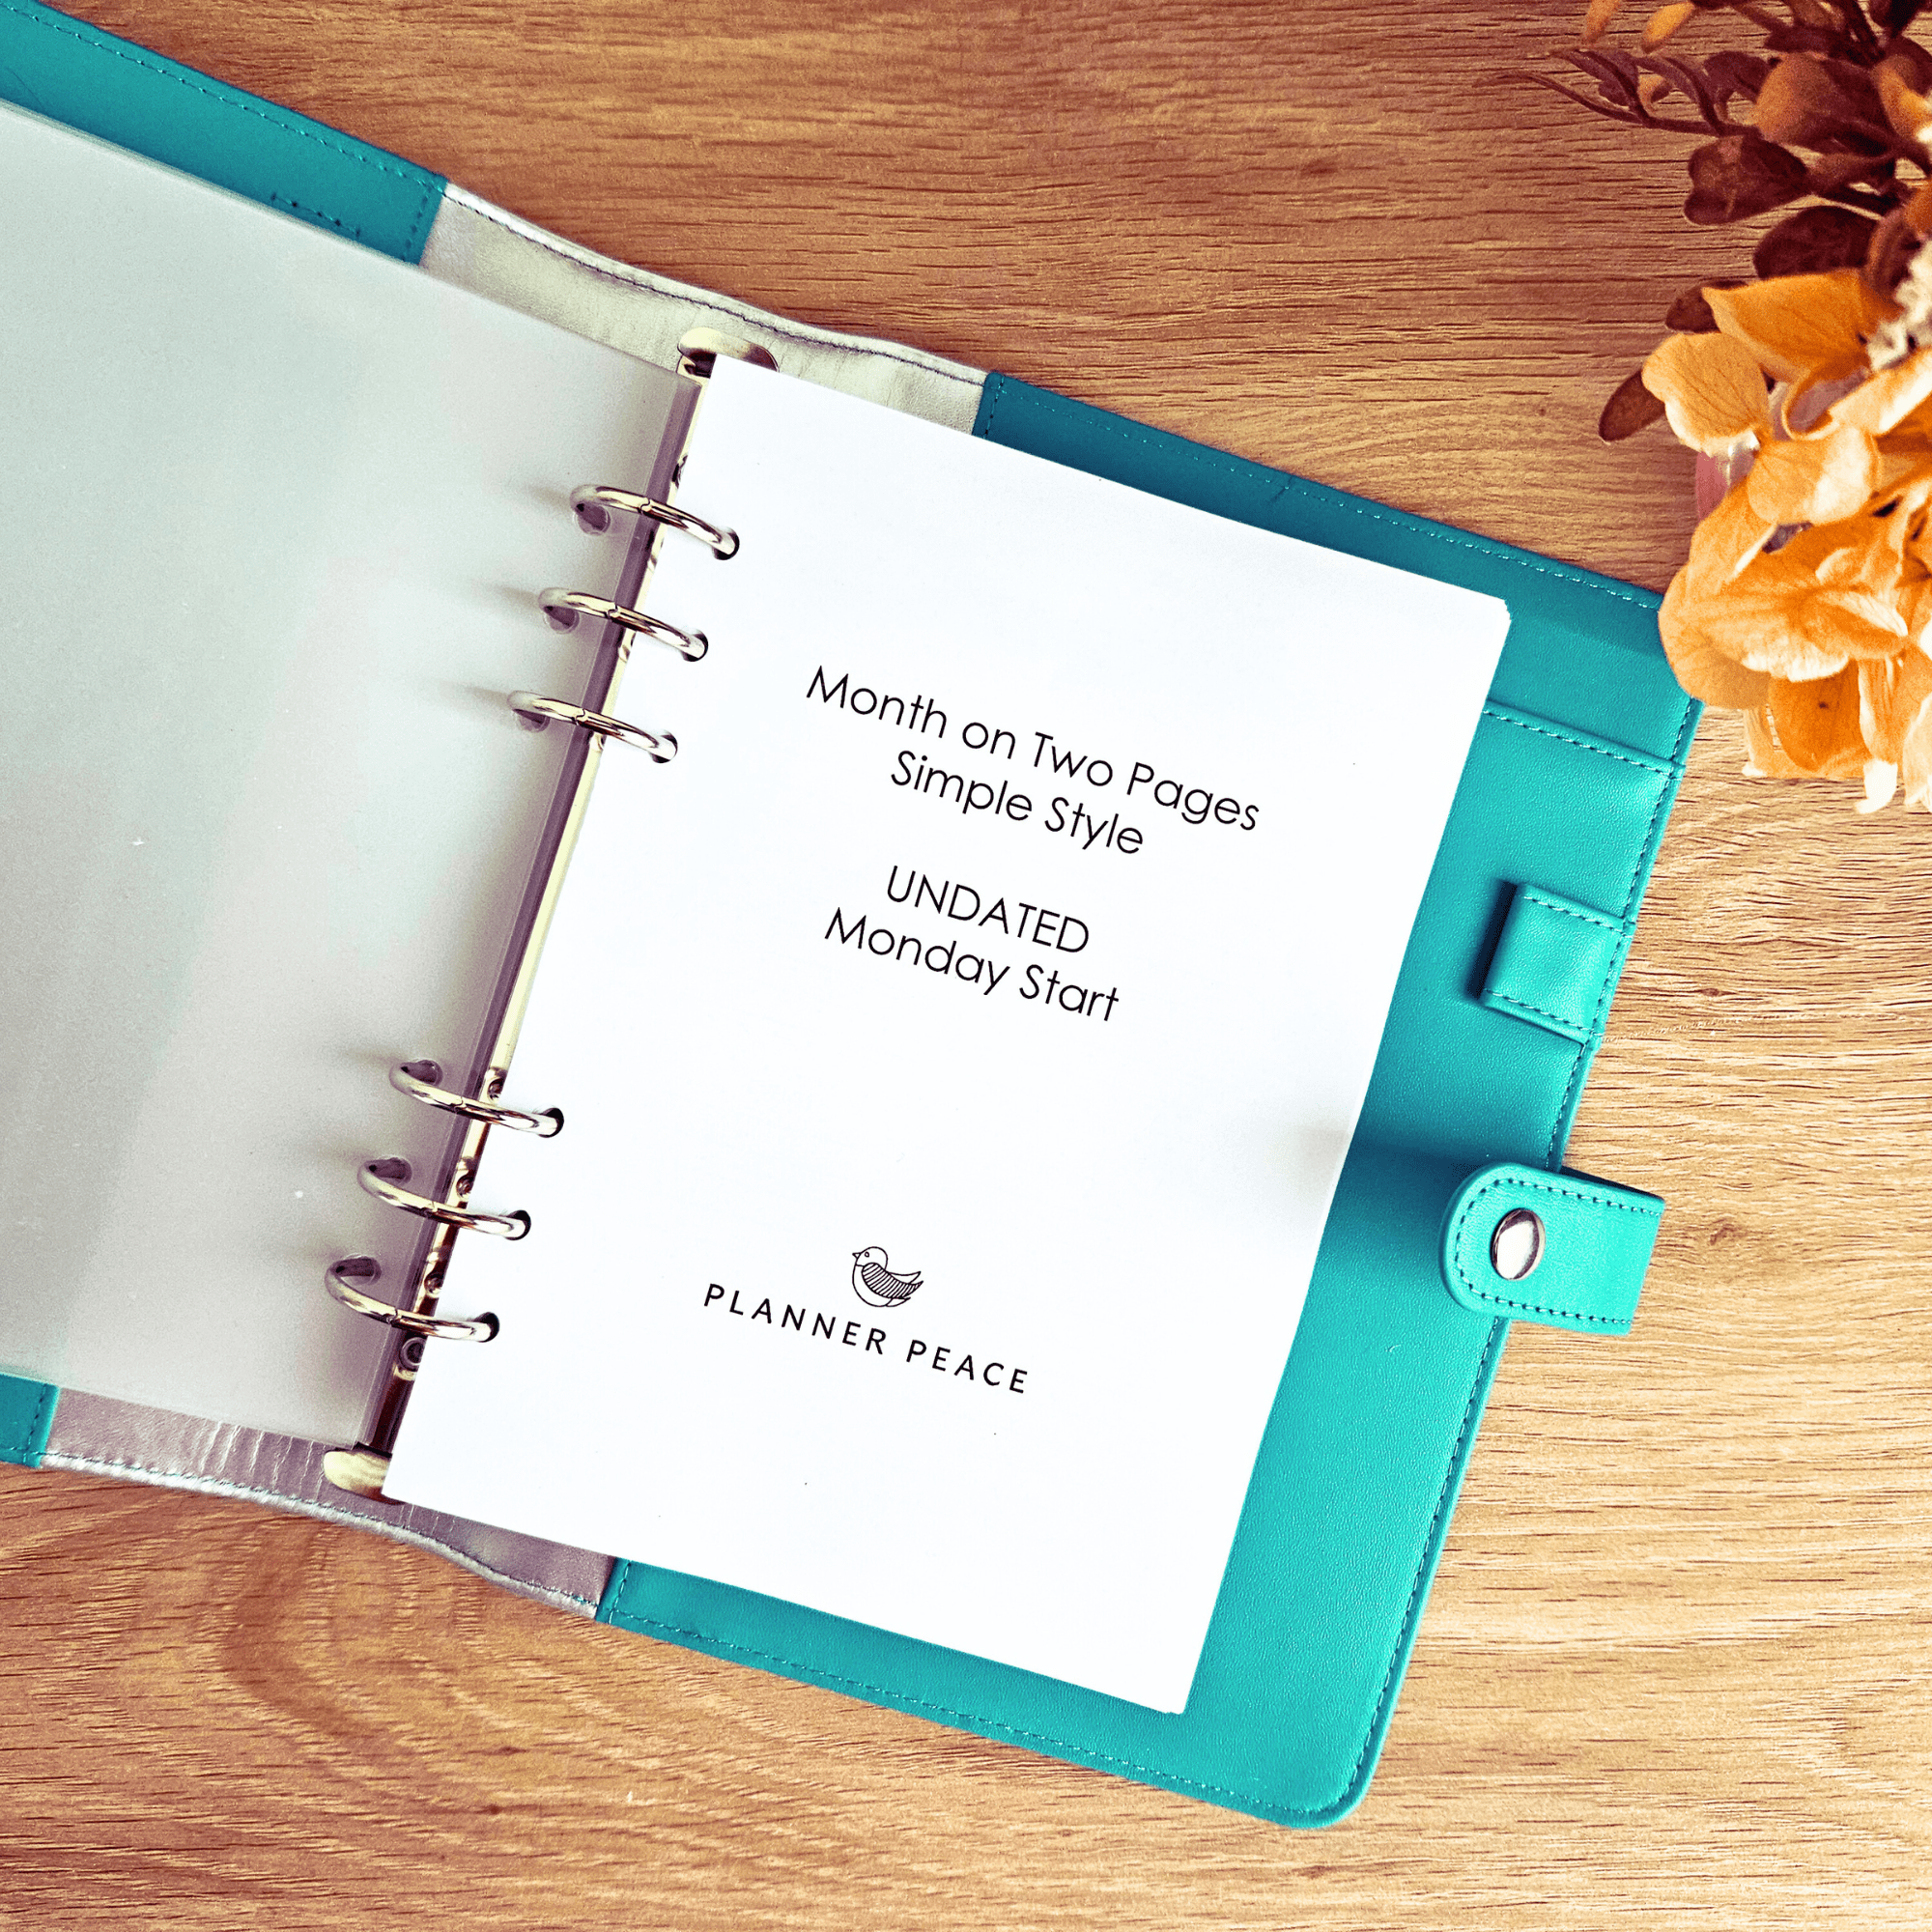 Month on Two Pages
Simple Style
UNDATED
Monday Start
PLANNER PEACE